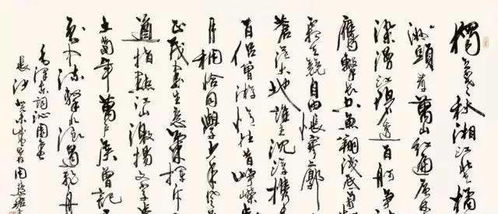 独立寒秋湘江北去橘
洲头看万山红遍层
染漫江碧透百舸争
鹰击长空鱼翔浅底万
霜天竞自由怅寥廓
苍茫大地谁主沉浮携
百侣曾游忆往昔峥嵘
月稠恰同学少年风
正茂书生意气挥斥
遒指点江山激扬文字
土当年万户侯曾记
到中流击水浪遏飞舟
毛泽东词沁园春
长沙